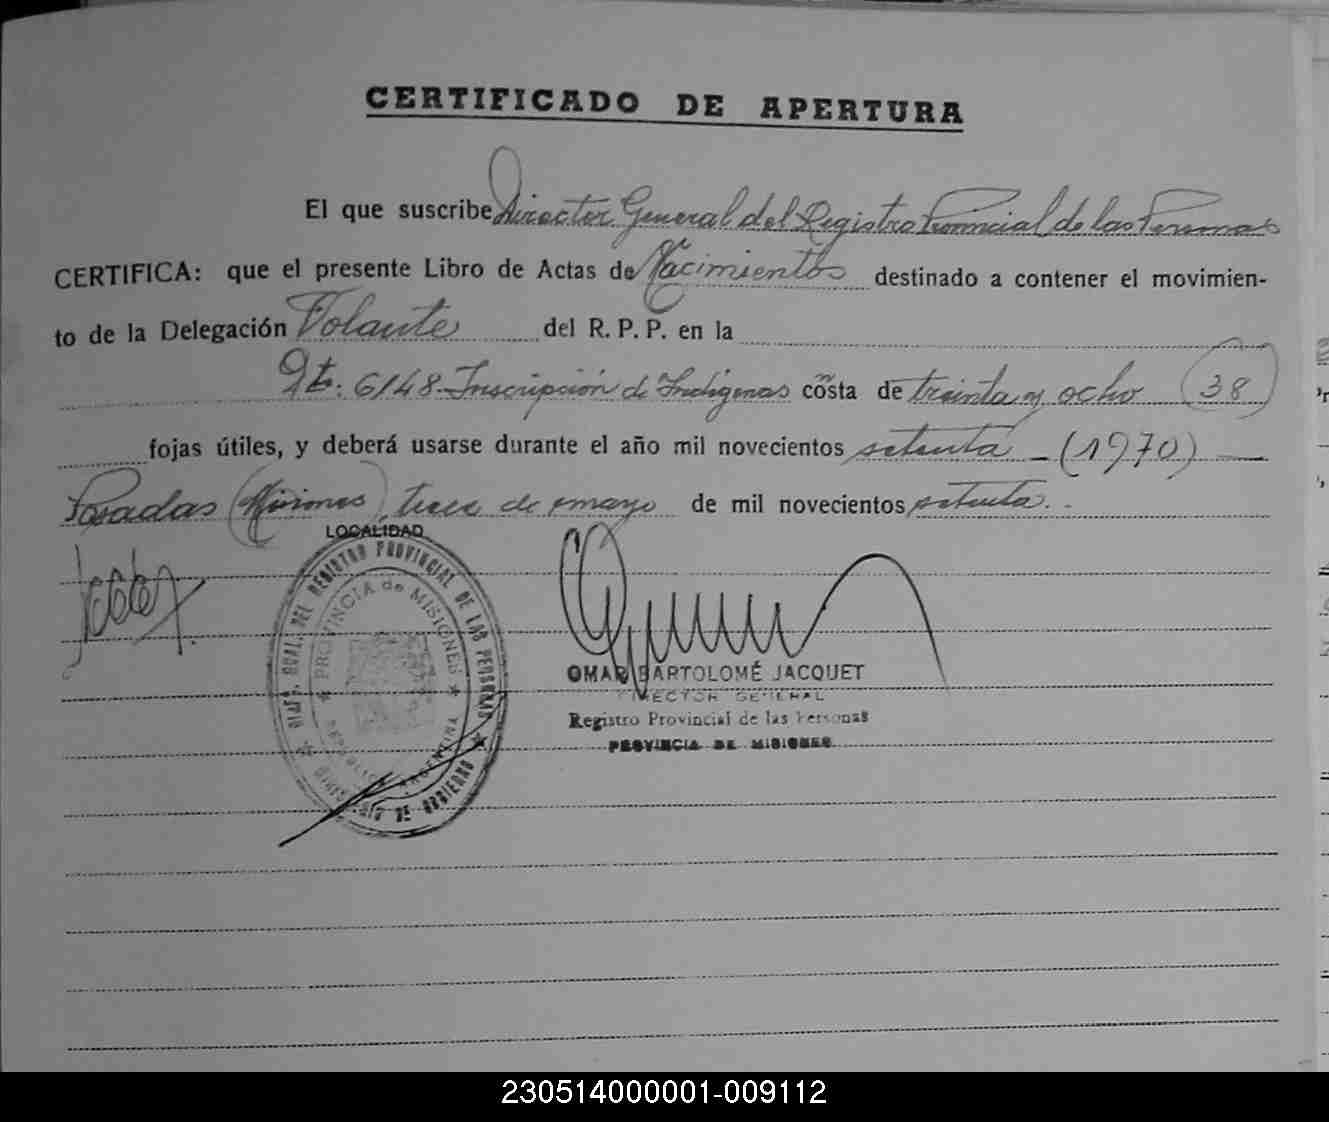 CERTIFICADO DE APERTURA
El que suscribe Director General del Registro Provincial de las Personas
CERTIFICA: que el presente Libro de Actas de Nacimientos destinado a contener el movimien-
to de la Delegación Volante del R. P. P. en la
6148 - Inscripción de Indígenas consta de treinta y ocho (38)
fojas útiles, y deberá usarse durante el año mil novecientos setenta - (1970) -
Posadas (Misiones), trece de mayo de mil novecientos setenta. -
LOCALIDAD
GRAL. DEL REGISTRO PROVINCIAL DE LAS PERSONAS
PROVINCIA de MISIONES
REPUBLICA ARGENTINA
DE GOBIERNO
OMAR BARTOLOMÉ JACQUET
DIRECTOR GENERAL
Registro Provincial de las Personas
PROVINCIA DE MISIONES
230514000001-009112